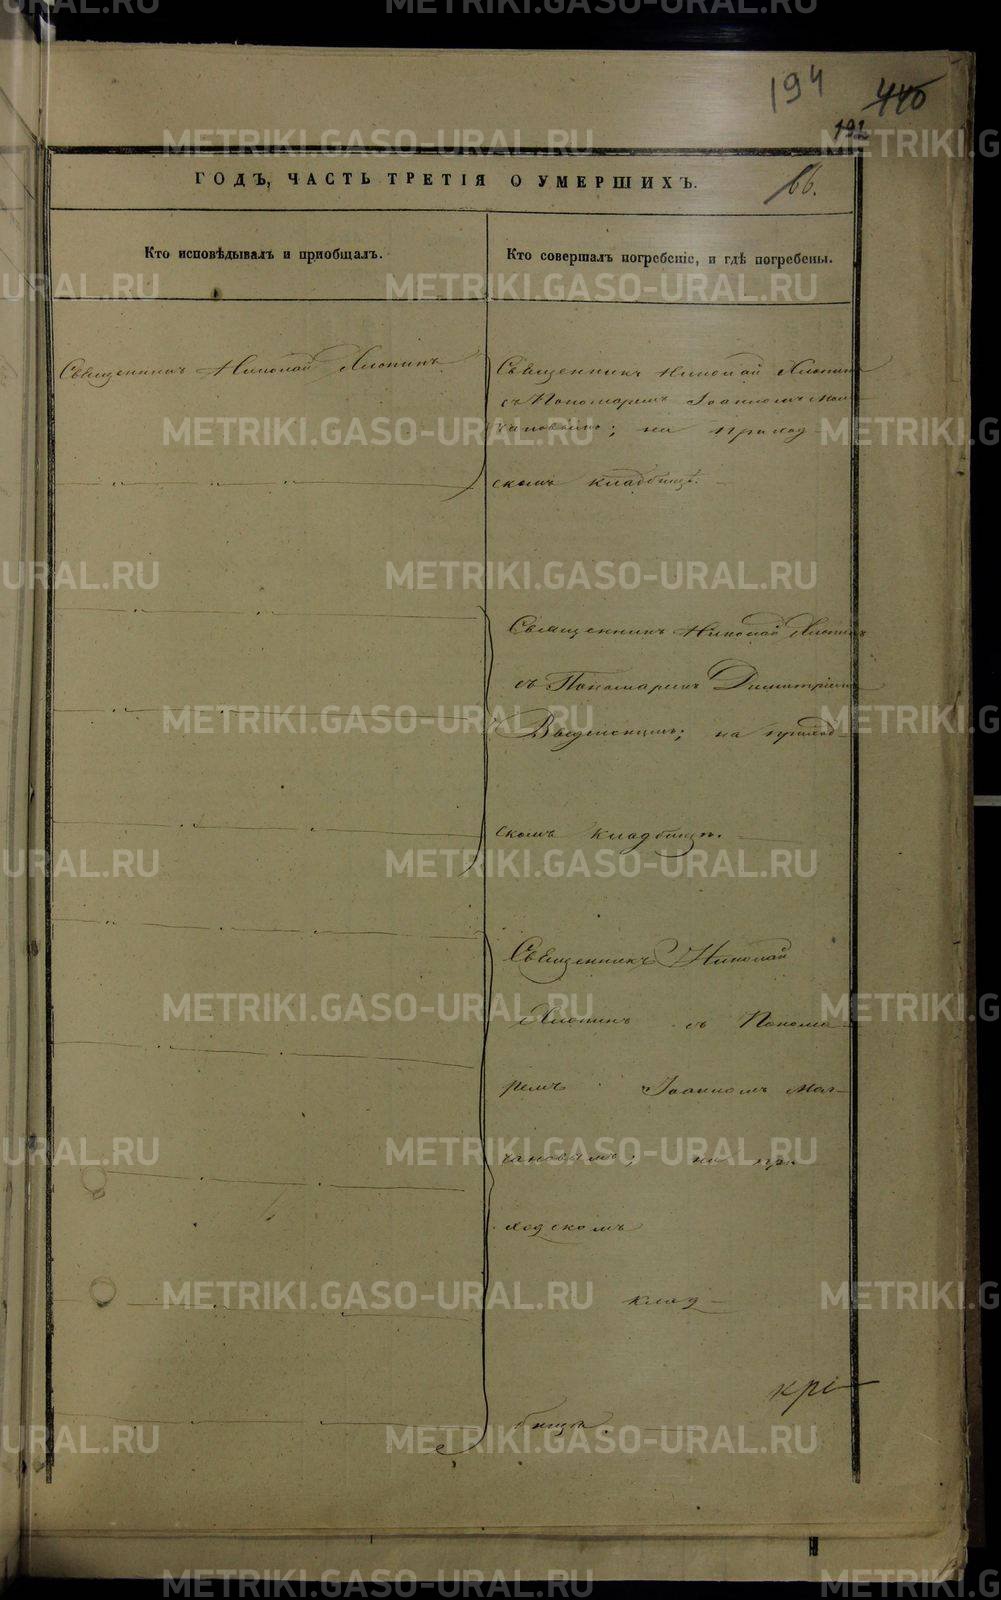 194
440
192
ГОДЪ, ЧАСТЬ ТРЕТІЯ О УМЕРШИХЪ.
66.
Кто исповѣдывалъ и пріобщалъ.
Кто совершалъ погребеніе, и гдѣ погребены.
Священникъ Николай Хлопинъ
Священникъ Николай Хлопинъ
съ Пономаремъ Іоанномъ Мол-
чановымъ; на приход-
скомъ кладбищѣ.
Священникъ Николай Хлопинъ
съ Пономаремъ Димитріемъ
Введенскимъ; на приход-
скомъ кладбищѣ.
Священникъ Николай
Хлопинъ съ Понома-
ремъ Іоанномъ Мол-
чановымъ; на при-
ходскомъ
клад-
бищѣ.
METRIKI.GASO-URAL.RU